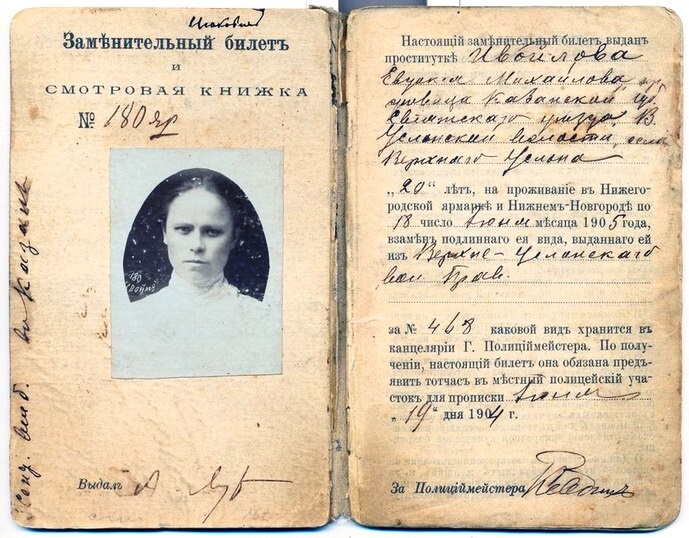 Замѣнительный билетъ
и
СМОТРОВАЯ КНИЖКА
№ 180 яр
180
Выдалъ
въ Казань
Настоящій замѣнительный билетъ выданъ
проституткѣ Ивойлова
Евдокія Михайлова, кр
Казанской гу
Свіяжскаго уѣзда, В
Услонской волости, села
Верхняго Услона
„20“ лѣтъ, на проживаніе въ Нижего-
родской ярмаркѣ и Нижнемъ-Новгородѣ по
18 число Іюня мѣсяца 1905 года,
взамѣнъ подлиннаго ея вида, выданнаго ей
изъ Верхне-Услонскаго
вол Прав.
за № 468 каковой видъ хранится въ
канцеляріи Г. Полиціймейстера. По полу-
ченіи, настоящій билетъ она обязана предъ-
явить тотчасъ въ мѣстный полицейскій уча-
стокъ для прописки Іюня
„19“ дня 1904 г.
За Полиціймейстера